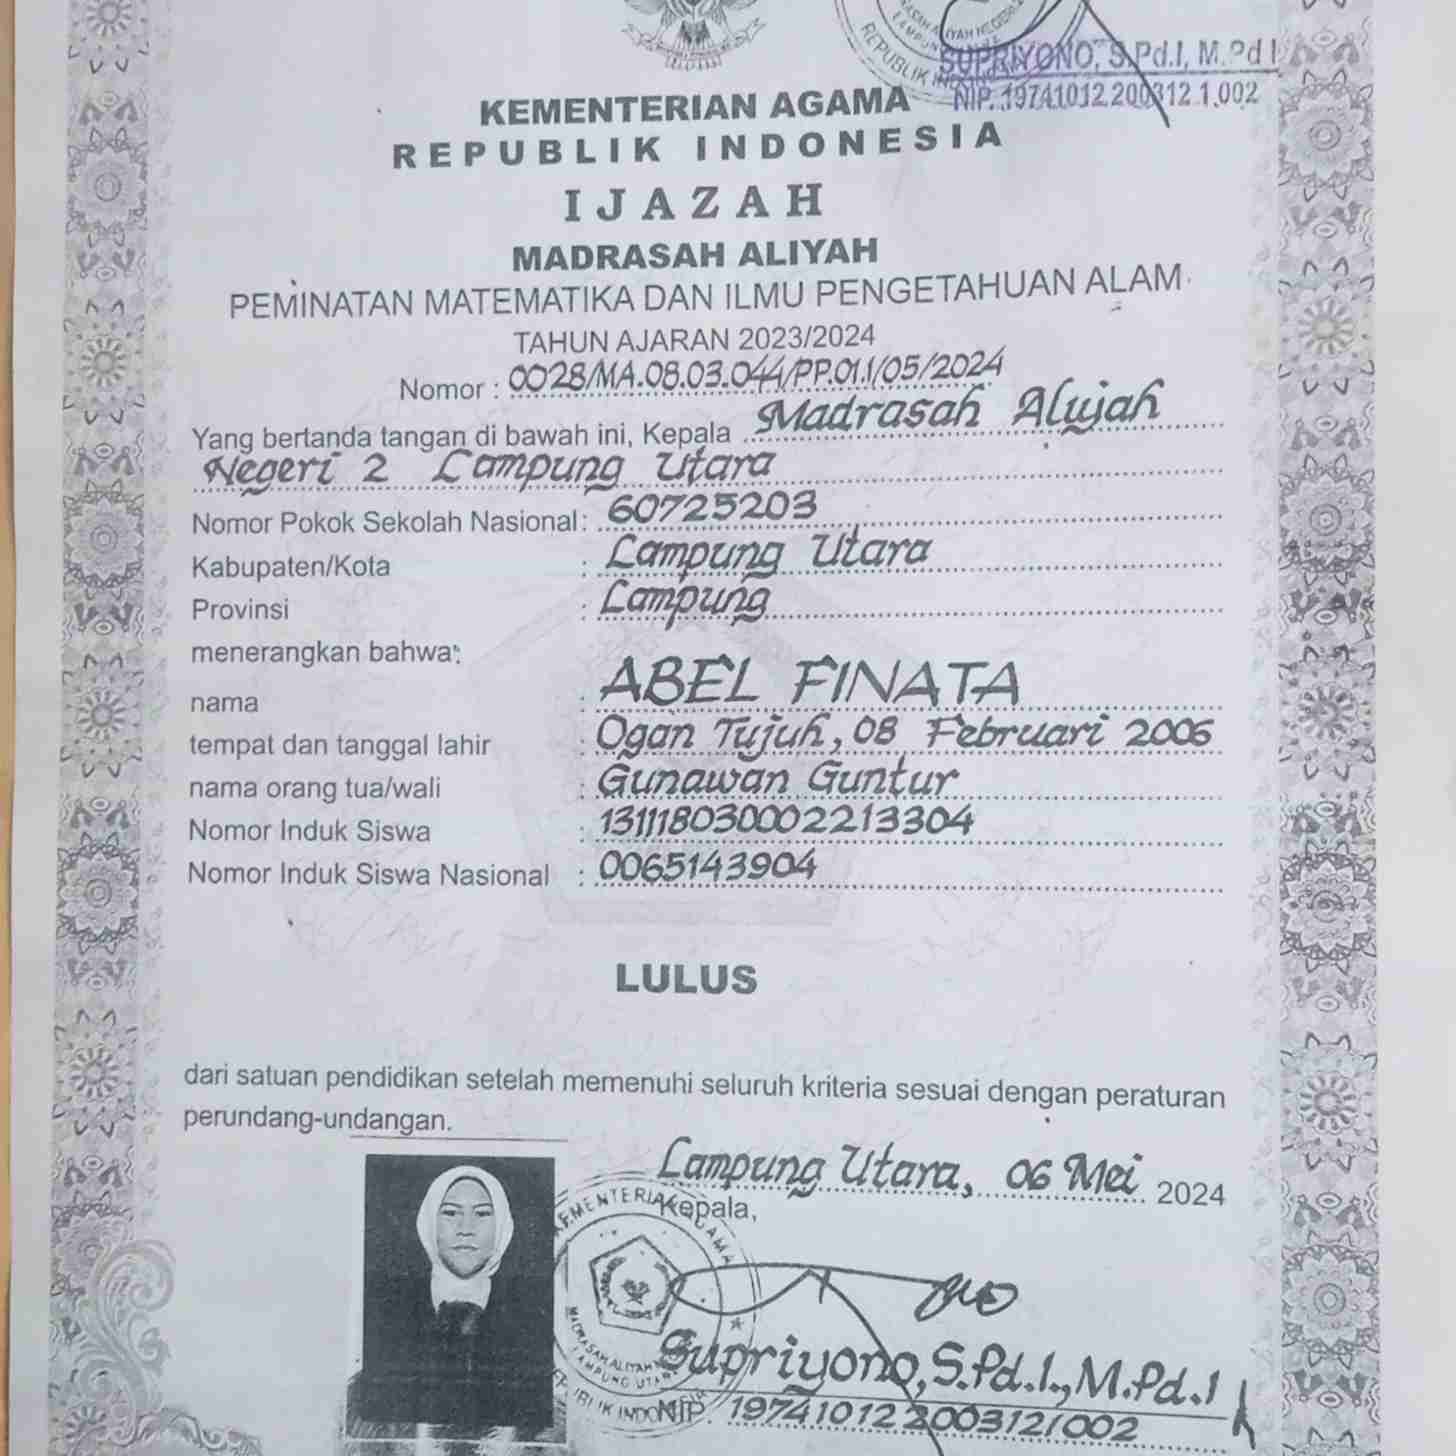 SUPRIYONO, S.Pd.I, M.Pd I
NIP. 19741012 200312 1 002
KEMENTERIAN AGAMA
REPUBLIK INDONESIA
IJAZAH
MADRASAH ALIYAH
PEMINATAN MATEMATIKA DAN ILMU PENGETAHUAN ALAM
TAHUN AJARAN 2023/2024
Nomor : 0028/MA.08.03.044/PP.01.1/05/2024
Yang bertanda tangan di bawah ini, Kepala Madrasah Aliyah
Negeri 2 Lampung Utara
Nomor Pokok Sekolah Nasional : 60725203
Kabupaten/Kota : Lampung Utara
Provinsi : Lampung
menerangkan bahwa:
nama : ABEL FINATA
tempat dan tanggal lahir : Ogan Tujuh, 08 Februari 2006
nama orang tua/wali : Gunawan Guntur
Nomor Induk Siswa : 131118030002213304
Nomor Induk Siswa Nasional : 0065143904
LULUS
dari satuan pendidikan setelah memenuhi seluruh kriteria sesuai dengan peraturan
perundang-undangan.
Lampung Utara, 06 Mei 2024
Kepala,
KEMENTERIAN AGAMA
MADRASAH ALIYAH
LAMPUNG UTARA
REPUBLIK INDONESIA
Supriyono, S.Pd.I., M.Pd.I
NIP. 197410122003121002